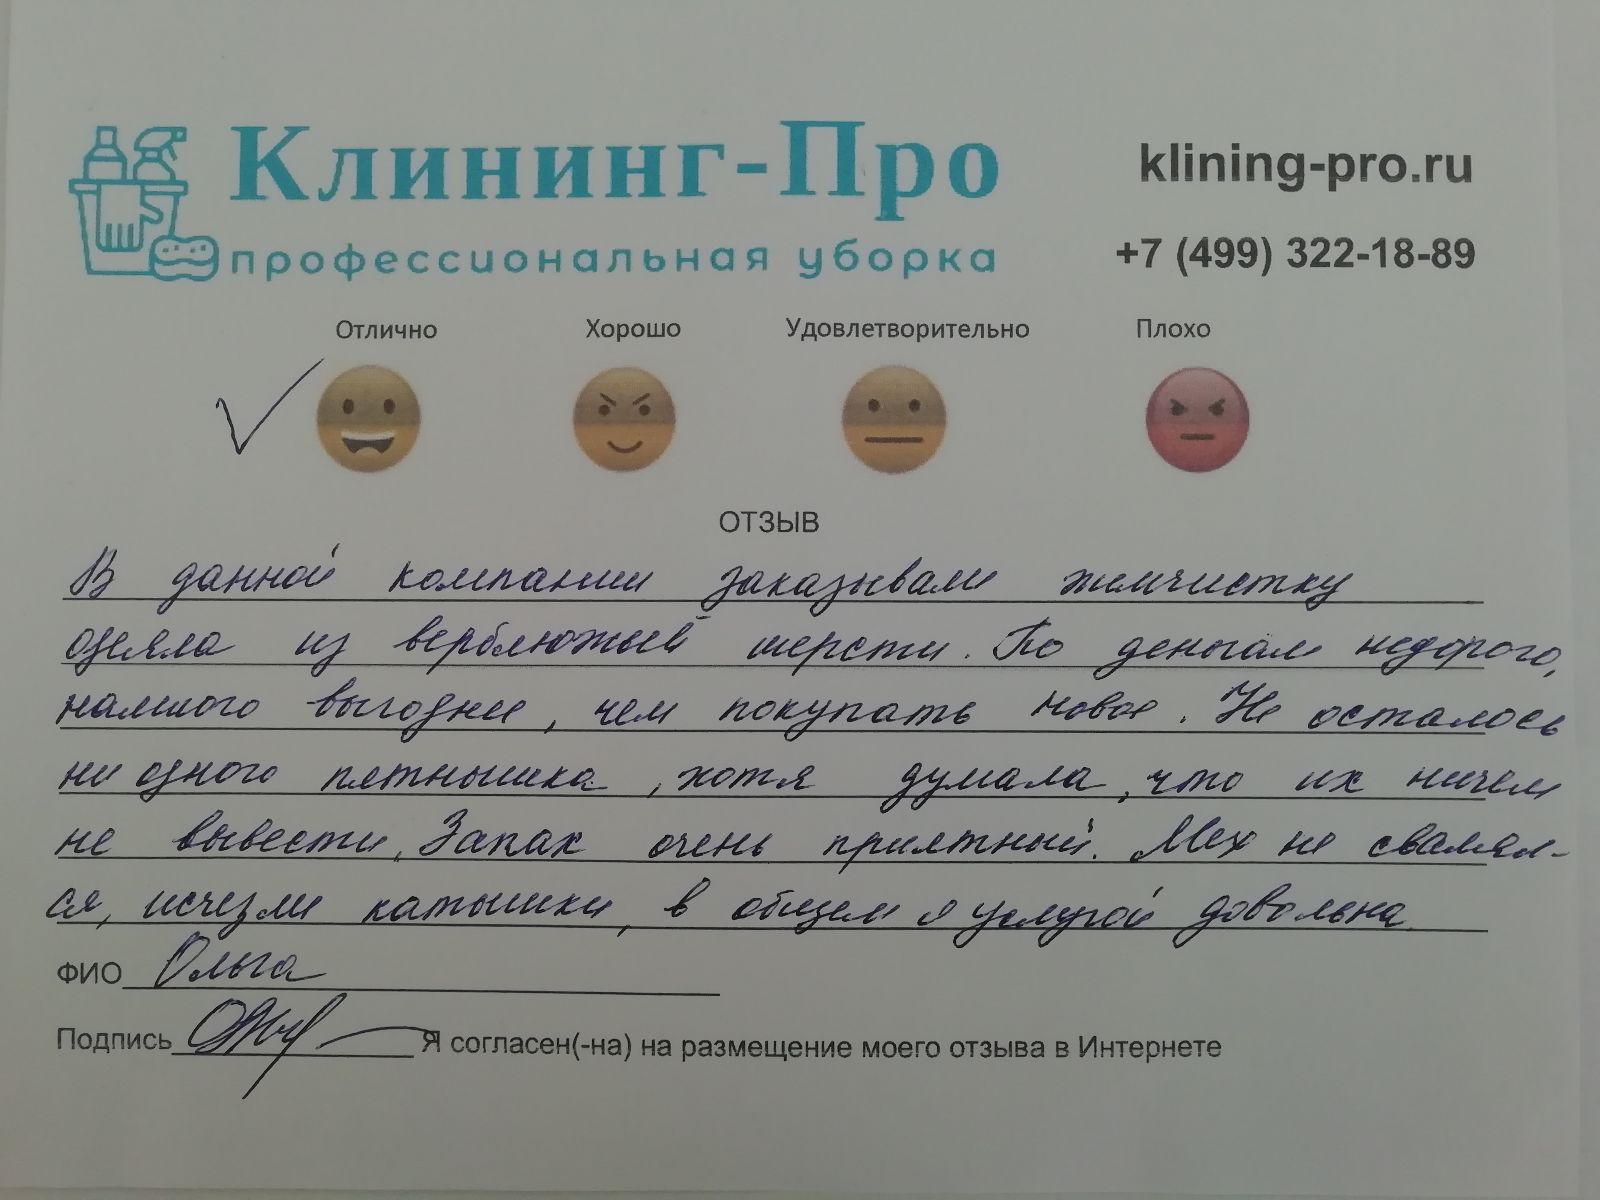 Клининг-Про
профессиональная уборка
klining-pro.ru
+7 (499) 322-18-89
Отлично Хорошо Удовлетворительно Плохо
ОТЗЫВ
В данной компании заказывали химчистку
одеяла из верблюжьей шерсти. По деньгам недорого,
намного выгоднее, чем покупать новое. Не осталось
ни одного пятнышка, хотя думала, что их ничем
не вывести. Запах очень приятный. Мех не свалял-
ся, исчезли катышки, в общем я услугой довольна.
ФИО Ольга
Подпись Я согласен(-на) на размещение моего отзыва в Интернете